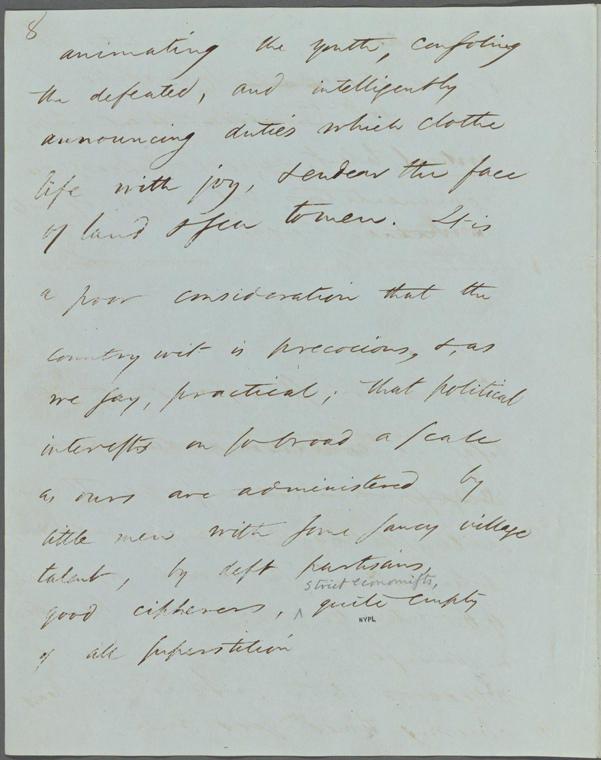 8
animating the youth, consoling
the defeated, and intelligently
announcing duties which clothe
life with joy, & endear the face
of land & sea to men. It is
a poor consideration that the
country wit is precocious, &, as
we say, practical; that political
interests on so broad a scale
as ours are administered by
little men with some saucy village
talent, by deft partisans,
strict economists,
good cipherers, ^ quite empty
of all superstition
NYPL